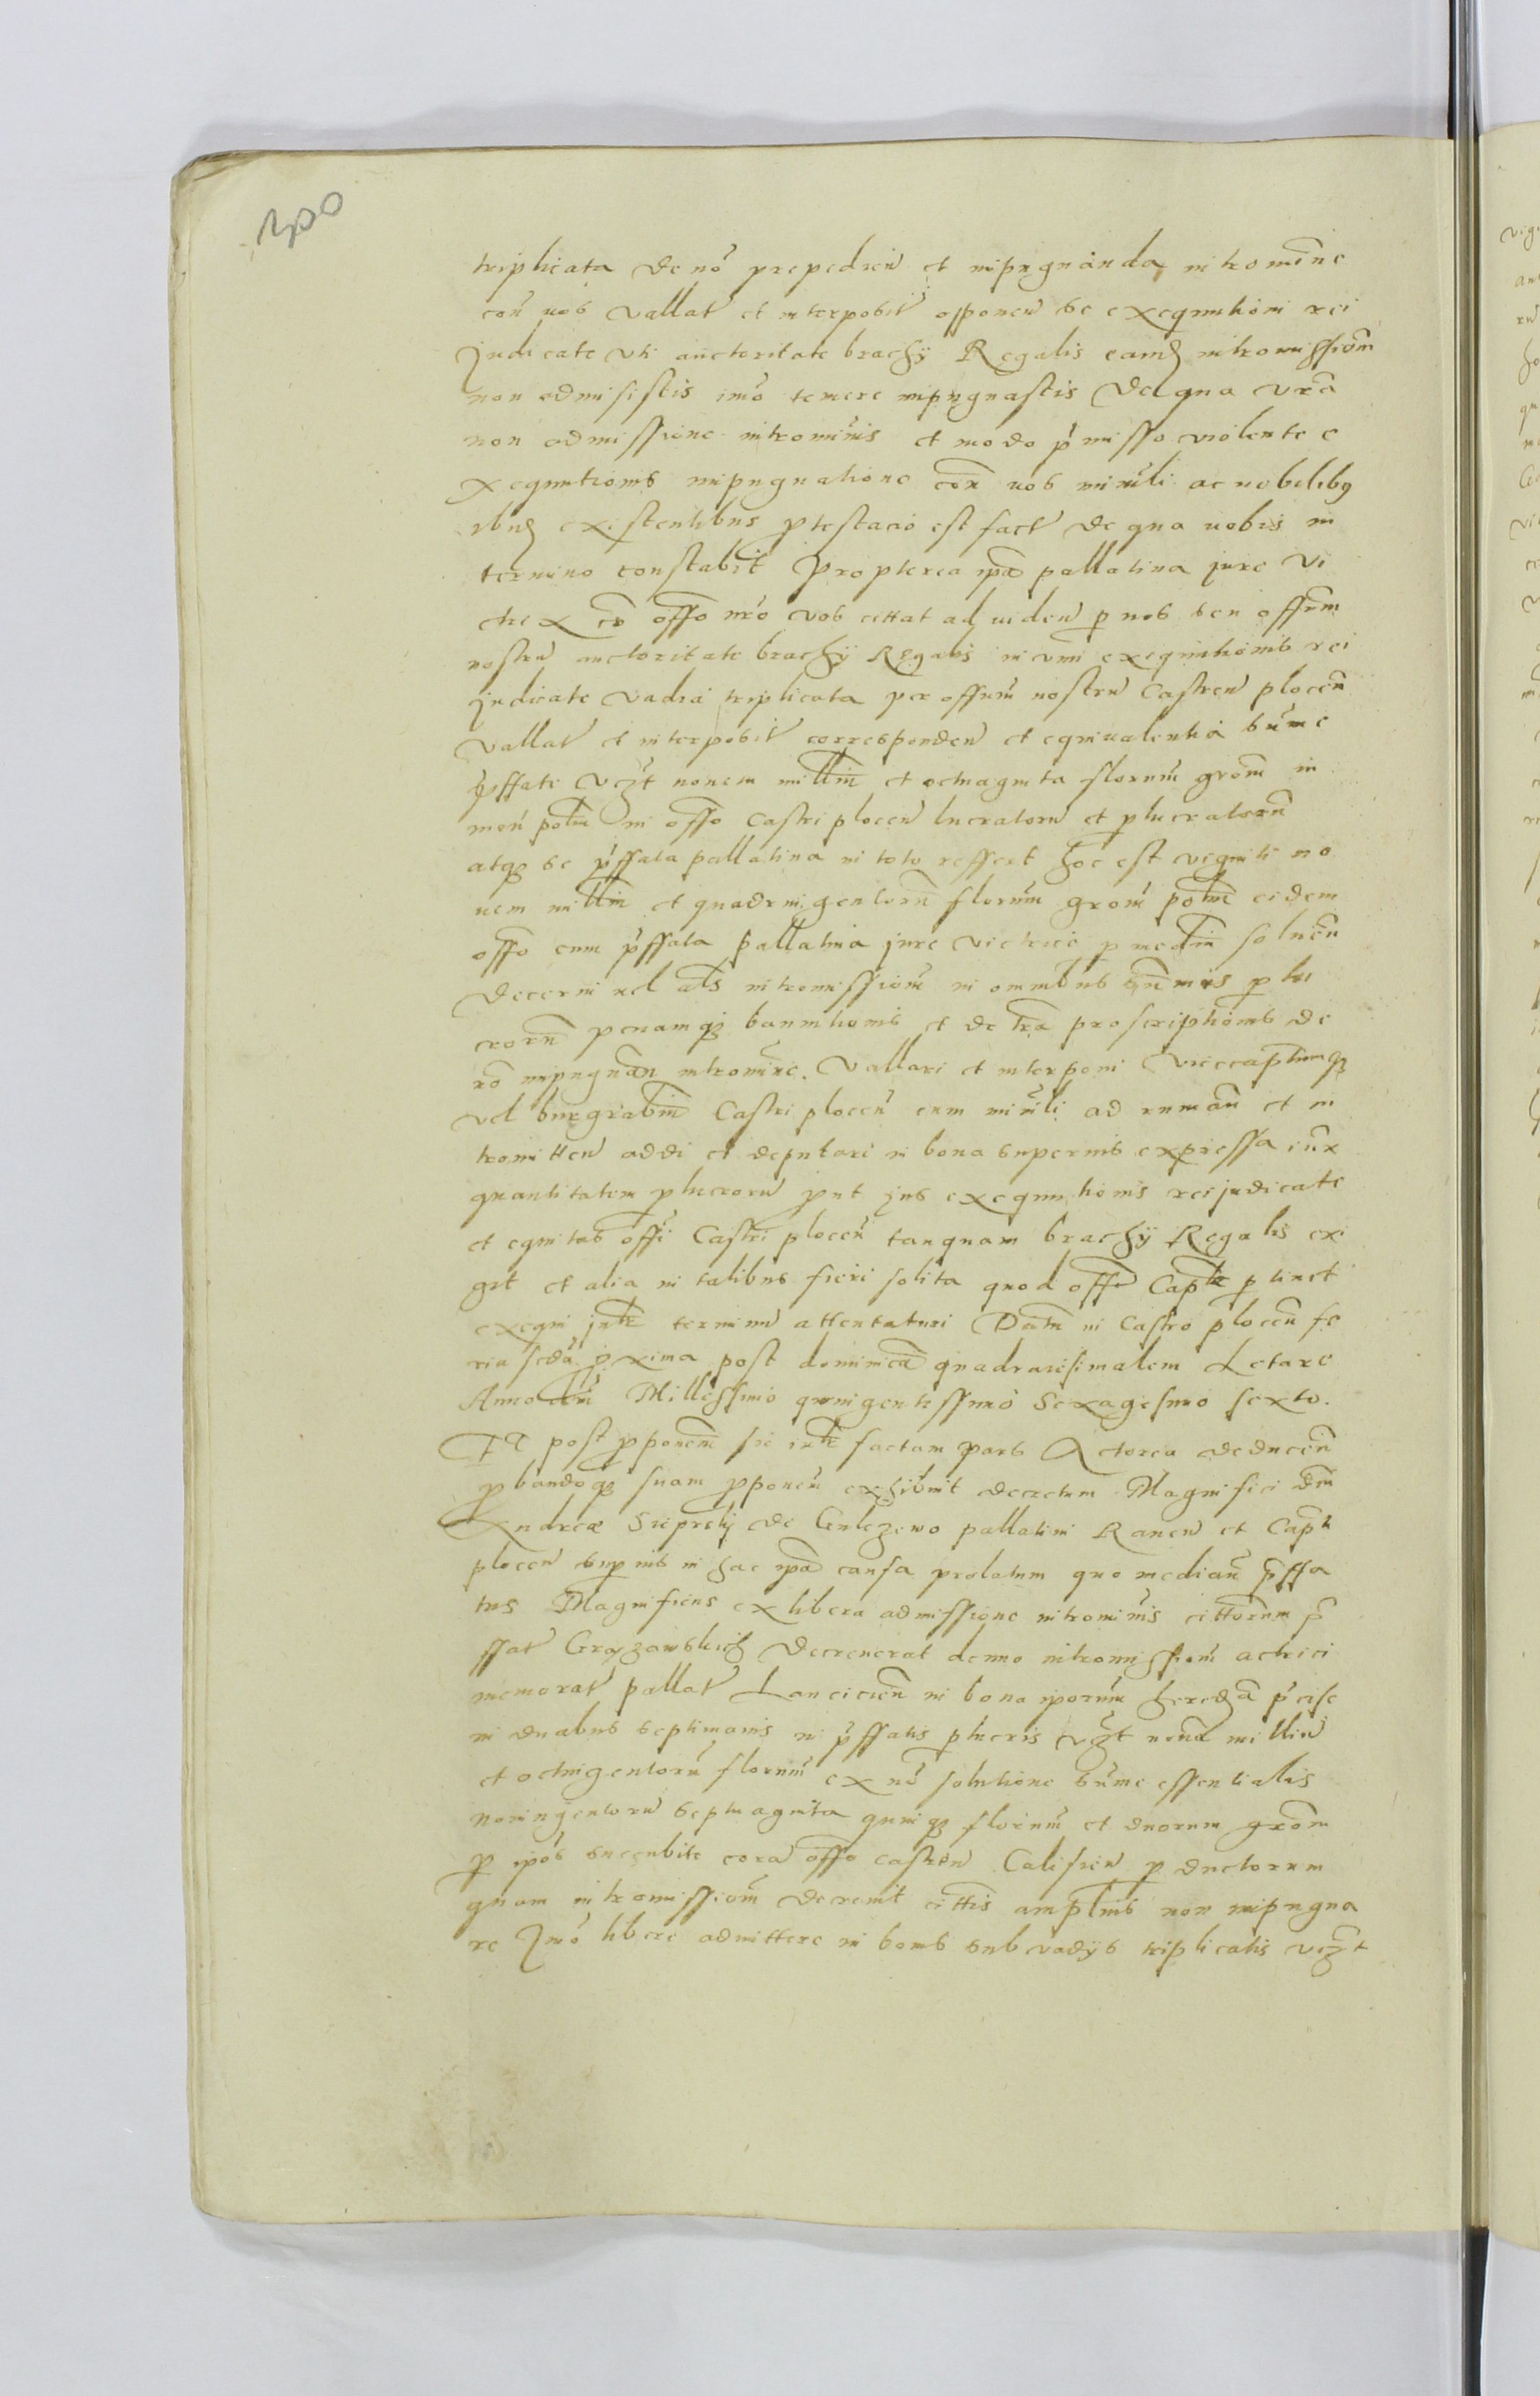 300
triplicata de nō prepedien et impugnanda intromine
con̄ vos vallat et interposit opponen se exequutioni rei
Judicate vti auctoritate brachÿ Regalis eamd intromissiom̄
non admisistis imō temere impugnastis De qua vr̄a
non admissione intromīnis et modo p̄misso violente e
xequutionis impugnatione con̄ vos minrli ac nobilibq
ibid existentibus ptestacio est fact de qua vobis in
termino constabit Propterea ip̄a pallatina jure vi
ctrix ad off̄o nr̄o vos cittat ad viden p nos seu offm̄
nostru auctoritate brachÿ Regalis in vim exequutionis rei
judicate vadia triplicata per offium nostru Castren plocen̄
vallat et interposit corresponden et equivalentia sūme
p̄ffate vcz̄t novem millm̄ et octuaginta florum̄ grom̄ in
mon̄ polm̄ in off̄o Castri plocen lucratoru et plucratorū
atqz se p̄ffata pallatina in toto reffert hoc est viginti no
uem millm̄ et quadringentoru florum̄ grom̄ polm̄ eidem
off̄o cum p̄ffata pallatina jure victrice p medm̄ soluen̄
Decerni vel als intromissiom̄ in omnibus sum̄mis p lu
crorū penamqz bannitionis et de tr̄a proscriptionis de
rō impugnan̄ intromine. Vallari et interponi vicecaptumqz
vel burgrabm̄ Castri plocen̄ cum minrli ad rumān et in
tromitten addi et deputari in bona superius expressa iux̄
quantitatem plucroru put jus exequutionis rei judicate
et equitas offi Castri plocen̄ tanquam brachÿ Regalis exi
git et alia in talibus fieri solita quod off̄o Captr̄ ptinet
exequi jntr̄ terminu attentaturi Datm̄ in Castro plocen̄ fe
ria scdā pxima post dominicā quadragesimalem Letare
Anno dn̄i Millessimo quingentessimo Sexagesimo sexto.
Et post pponem̄ sic intr̄ factam pars Actorea deducen̄
pbandoqz suam pponem̄ exhibuit decretum Magnifici dm̄
Andreæ Sieprskÿ de Gulczewo pallatini Rauen et Capt
plocen superius in hac ip̄a causa prolatum quo median̄ p̄ffa
tus Magnificus ex libera admissione intromīnis cittorum p̄
ffat Grazawskich Decreuerat denuo intromissiom̄ actrici
memorat pallat Lancicien̄ in bona ipōrum heredā p̄cise
in duabus septimanis in p̄ffatis plucris vcz̄t nouē milliu
et octuigentorū florum̄ ex nō solutione sūme essentialis
noningentoru septuaginta quinqz florum̄ et duorum grom̄
p ipōs succubite corā off̄o castren Calisien pductorum
quam intromissiom̄ decreuit cittis amplius non impugna
re Jmō libere admittere in bonis sub vadÿs triplicatis vcz̄t